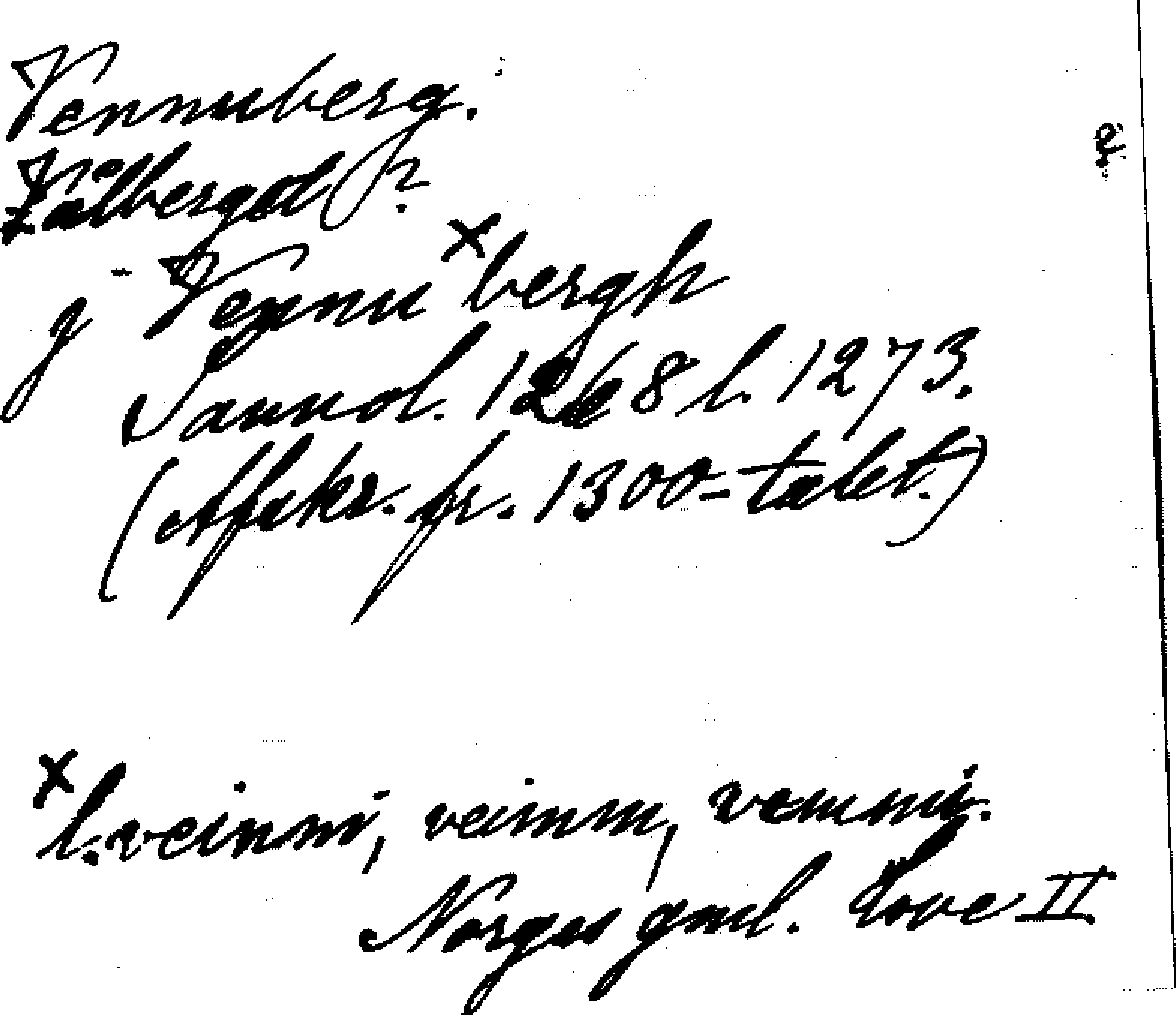 Vennuberg.
Vålberget (?)
j Vennu × bergh
Sannol. 1268 l. 1273.
(Afskr. fr. 1300-talet.)
× l. veinni, veinm, vemmi.
Norges gml. Love II